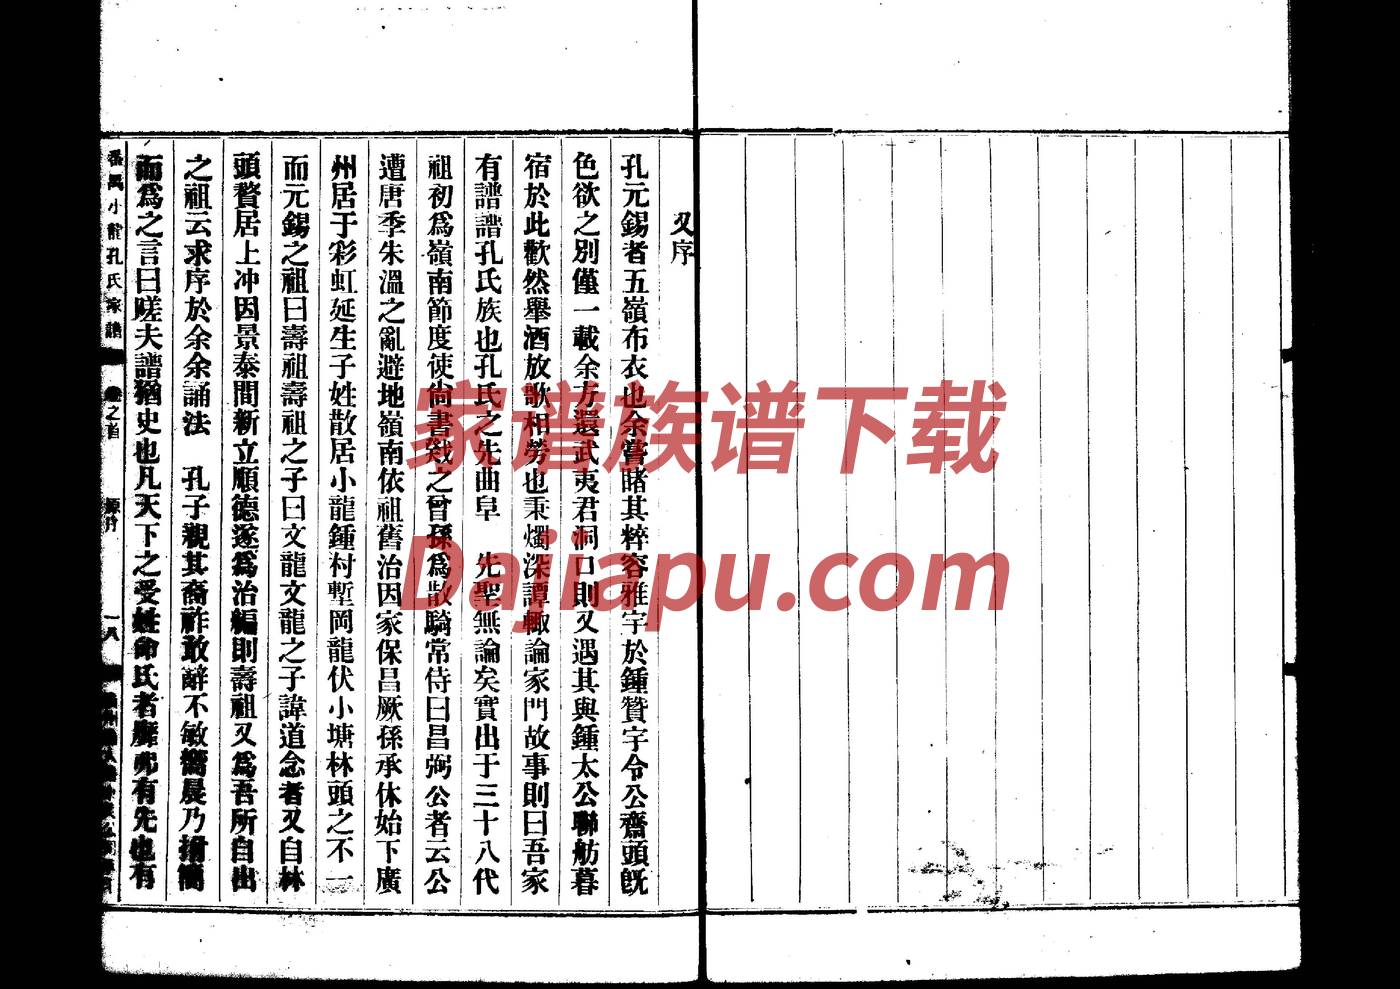 又序
孔元錫者五嶺布衣也余嘗睹其粹容雅宇於鍾贊宇令公齋頭旣
色欲之別僅一載余方還武夷君洞口則又遇其與鍾太公聯舫暮
宿於此歡然舉酒放歌相勞也秉燭深譚輙論家門故事則曰吾家
有譜譜孔氏族也孔氏之先曲阜　先聖無論矣實出于三十八代
祖初爲嶺南節度使尙書戣之曾孫爲散騎常侍曰昌弼公者云公
遭唐季朱溫之亂避地嶺南依祖舊治因家保昌厥孫承休始下廣
州居于彩虹延生子姓散居小龍鍾村塹岡龍伏小塘林頭之不一
而元錫之祖曰壽祖壽祖之子曰文龍文龍之子諱道念者又自林
頭贅居上冲因景泰間新立順德遂爲治編則壽祖又爲吾所自出
之祖云求序於余余誦法　孔子覩其裔祚敢辭不敏嚮晨乃搦簡
而爲之言曰嗟夫譜猶史也凡天下之受姓命氏者靡弗有先也有
番禺小龍孔氏家譜
卷之首
原序
一八
家谱族谱下载
Dajiapu.com